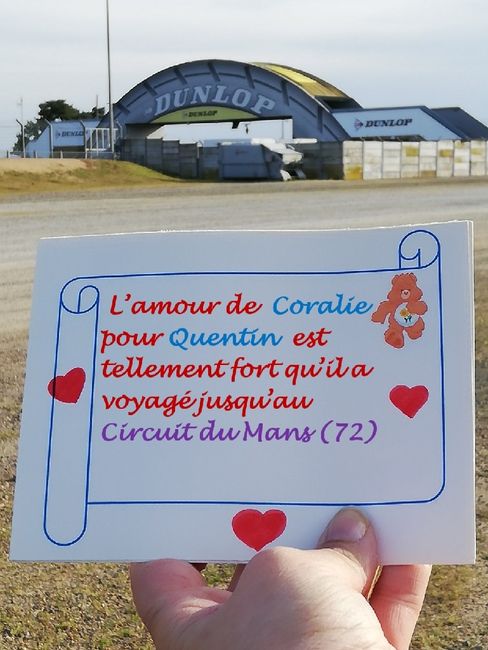 DUNLOP
DUNLOP
DUNLOP
DUNLOP
L'amour de Coralie
pour Quentin est
tellement fort qu'il a
voyagé jusqu'au
Circuit du Mans (72)